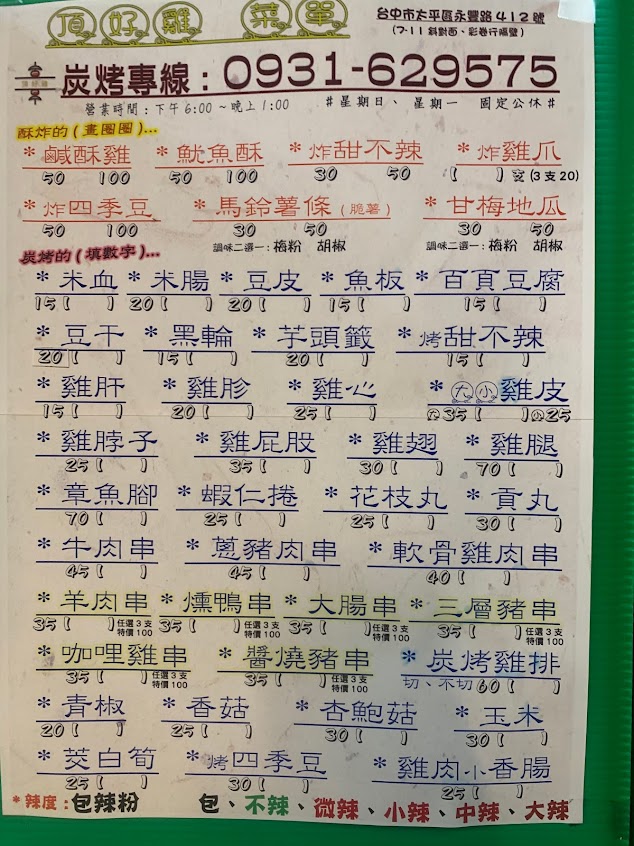 頂好雞 菜單
台中市太平區永豐路412號
(7-11 斜對面、彩卷行隔壁)
頂好雞
炭烤專線：0931-629575
營業時間：下午6:00~晚上1:00 #星期日、星期一 固定公休#
酥炸的(畫圈圈)...
*鹹酥雞 *魷魚酥 *炸甜不辣 *炸雞爪
50 100 50 100 30 50 ( )支(3支20)
*炸四季豆 *馬鈴薯條(脆薯) *甘梅地瓜
50 100 30 50 30 50
調味二選一:梅粉 胡椒 調味二選一:梅粉 胡椒
炭烤的(填數字)...
*米血 *米腸 *豆皮 *魚板 *百頁豆腐
15( ) 20( ) 20( ) 15( ) 15( )
*豆干 *黑輪 *芋頭籤 *烤甜不辣
20( ) 15( ) 20( ) 15( )
*雞肝 *雞胗 *雞心 *大小雞皮
15( ) 20( ) 25( ) 大35( )小25
*雞脖子 *雞屁股 *雞翅 *雞腿
25( ) 35( ) 30( ) 70( )
*章魚腳 *蝦仁捲 *花枝丸 *貢丸
70( ) 25( ) 25( ) 30( )
*牛肉串 *蔥豬肉串 *軟骨雞肉串
45( ) 45( ) 40( )
*羊肉串 *燻鴨串 *大腸串 *三層豬串
35( )任選3支特價100 35( )任選3支特價100 35( )任選3支特價100 35( )任選3支特價100
*咖哩雞串 *醬燒豬串 *炭烤雞排
35( )任選3支特價100 35( )任選3支特價100 切、不切60( )
*青椒 *香菇 *杏鮑菇 *玉米
20( ) 25( ) 30( ) 30( )
*茭白筍 *烤四季豆 *雞肉小香腸
25( ) 30( ) 25( )
*辣度:包辣粉 包、不辣、微辣、小辣、中辣、大辣